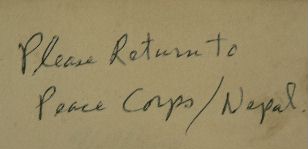 Please Return to
Peace Corps/Nepal.